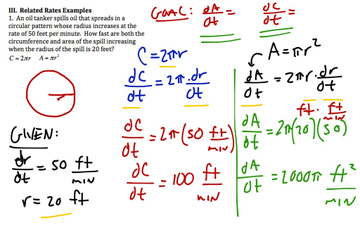 III. Related Rates Examples
1. An oil tanker spills oil that spreads in a
circular pattern whose radius increases at the
rate of 50 feet per minute. How fast are both the
circumference and area of the spill increasing
when the radius of the spill is 20 feet?
C = 2πr    A = πr²
r
GIVEN:
dr/dt = 50 ft/min
r = 20 ft
GOAL: dA/dt =    dC/dt =
C = 2πr
dC/dt = 2π · dr/dt
dC/dt = 2π (50 ft/min)
dC/dt = 100 ft/min
A = πr²
dA/dt = 2πr · dr/dt
ft · ft/min
dA/dt = 2π(20)(50)
dA/dt = 2000π ft²/min